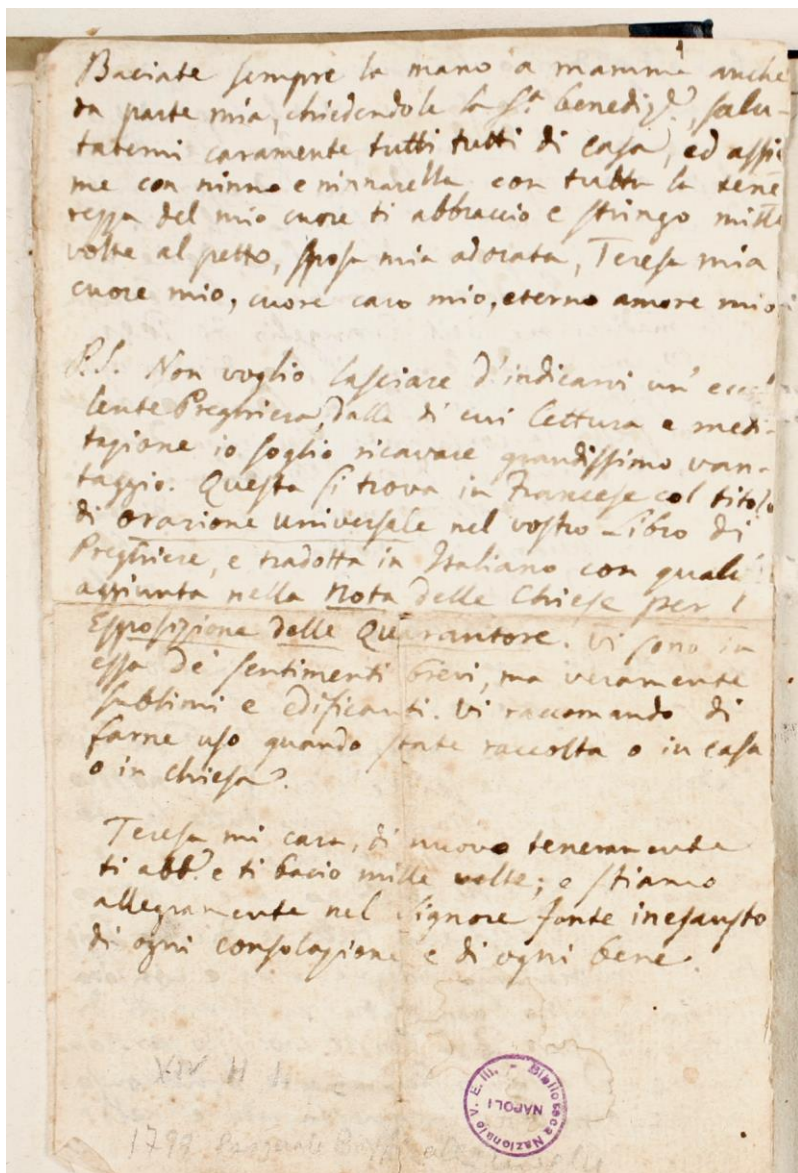 Baciate sempre la mano a mammà anche
da parte mia, chiedendole la S.ta benediz.e, salu-
tatemi caramente tutti tutti di casa, ed assie
me con ninno e ninnarella con tutta la tene
rezza del mio cuore ti abbraccio e stringo mille
volte al petto, sposa mia adorata, Teresa mia
cuore mio, cuore caro mio, eterno amore mio
P.S. Non voglio lasciare d'indicarvi un' eccel
lente Preghiera, dalla di cui lettura e medi-
tazione io soglio ricavare grandissimo van-
taggio. Questa si trova in Francese col titolo
di orazione universale nel vostro Libro di
Preghiere, e tradotta in Italiano con qualche
aggiunta nella Nota delle Chiese per l
Esposizione delle Quarantore. Vi sono in
essa de' sentimenti brevi, ma veramente
sublimi e edificanti. Vi raccomando di
farne uso quando state raccolta o in casa
o in chiesa.
Teresa mi cara, di nuovo teneramente
ti abb.o e ti bacio mille volte; e stiamo
allegramente nel Signore fonte inesausto
di ogni consolazione e di ogni bene.
XIV H
Biblioteca Nazionale V. E. III. - NAPOLI
1799 Pasquale